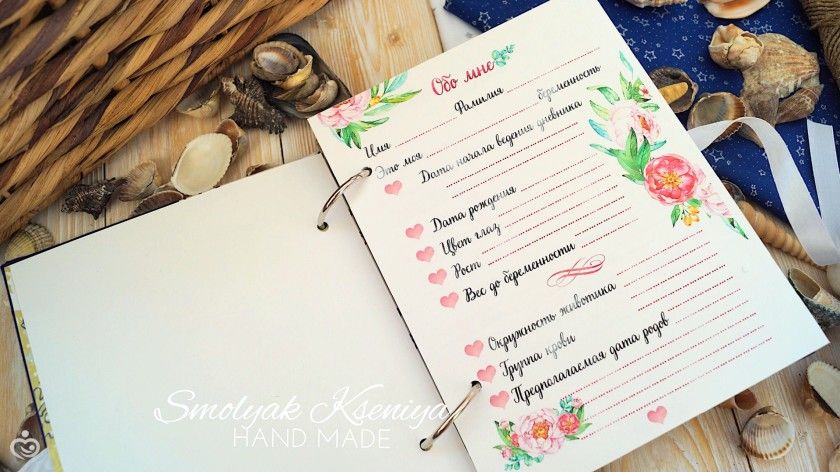 Обо мне
Имя Фамилия
Это моя беременность
Дата начала ведения дневника
Дата рождения
Цвет глаз
Рост
Вес до беременности
Окружность животика
Группа крови
Предполагаемая дата родов
Smolyak Kseniya
HAND MADE